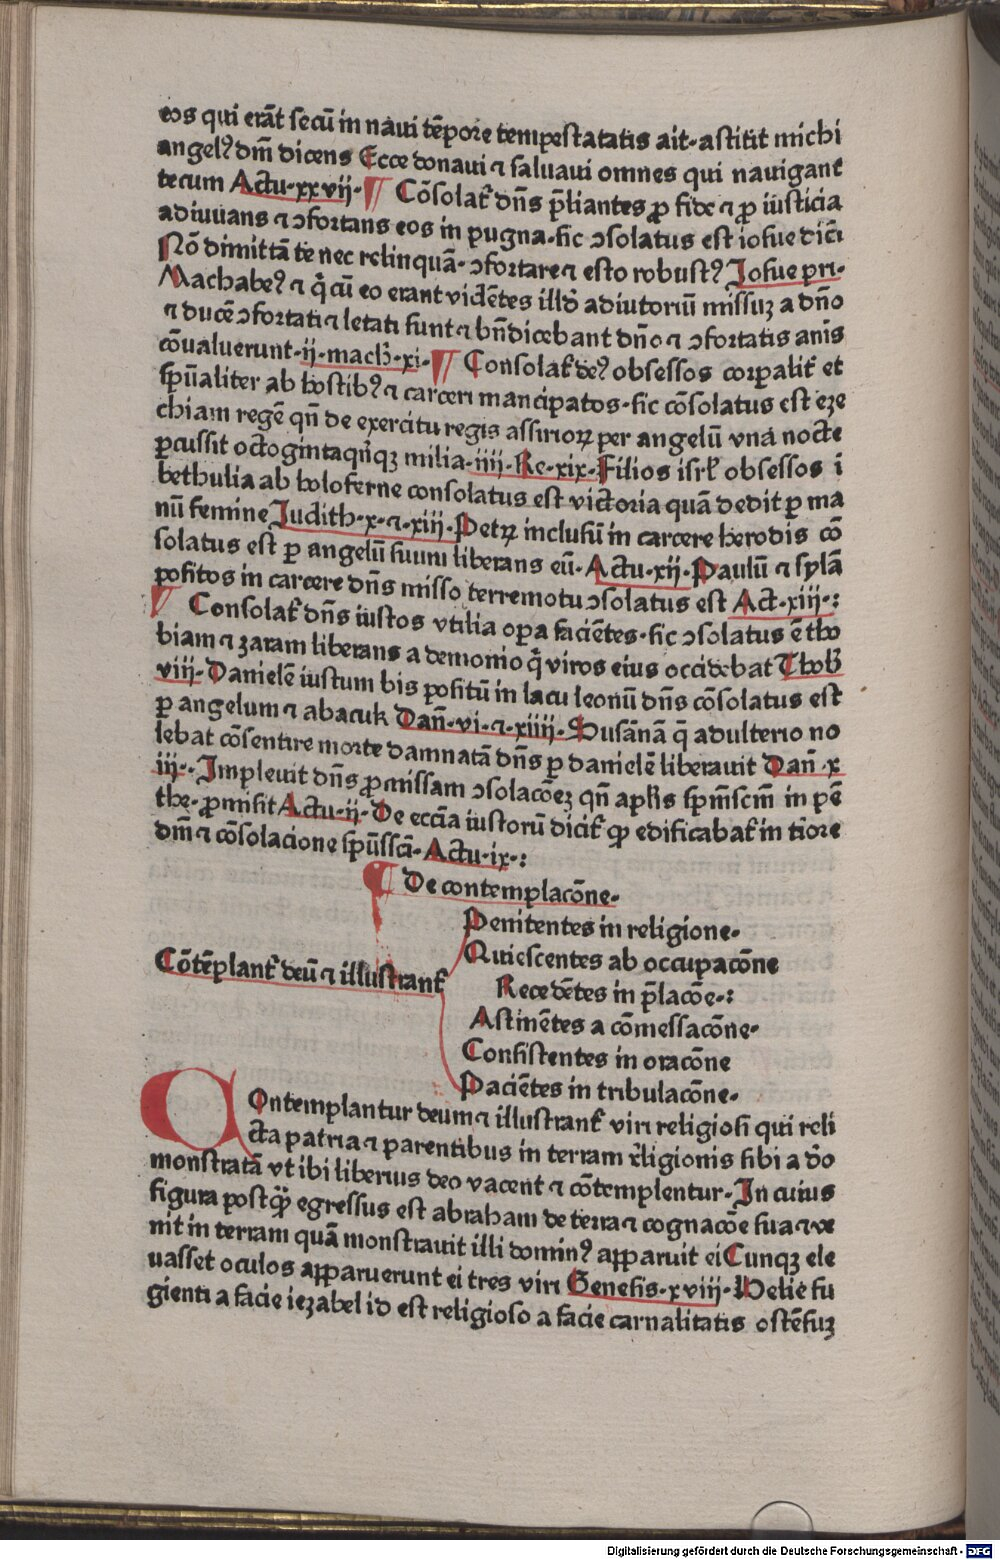 eos qui erāt secū in naui tēpore tempestatatis ait· astitit michi
angelꝰ dm̄ dicens Ecce donaui ⁊ saluaui omnes qui nauigant
tecum Actu·xxvii· ¶ Cōsolat᷑ dn̄s p̄liantes ꝓ fide ⁊ ꝓ iusticia
adiuuans ⁊ ↄfortans eos in pugna·sic ↄsolatus est iosue dicēs
Nō dimittā te nec relinquā· ↄfortare ⁊ esto robustꝰ Josue pri·
Machabeꝰ ⁊ q̄ cū eo erant vidētes illd̄ adiutoriū missuꝫ a dn̄o
⁊ ducē ↄfortati ⁊ letati sunt ⁊ bn̄dicebant dn̄o ⁊ ↄfortatis anīs
cōualuerunt·ii·mach̄·xi· ¶ Consolat᷑ deꝰ obsessos corꝑalit᷑ et
sp̄ualiter ab hostibꝰ ⁊ carceri mancipatos·sic cōsolatus est eze
chiam regē qn̄ de exercitu regis assirioꝝ per angelū vna nocte
ꝑcussit octogintaqn̄qꝫ milia·iiii·Re·xix·Filios isrl̄ obsessos ī
bethulia ab holoferne consolatus est victoria quā dedit ꝑ ma
nū femine Judith·x·⁊·xiii·Petꝝ inclusū in carcere herodis cō
solatus est ꝑ angelū suum liberans eū·Actu·xii·Paulū ⁊ sylā
positos in carcere dn̄s misso terremotu ↄsolatus est Act·xiii·:
¶ Consolat᷑ dn̄s iustos vtilia oꝑa faciētes·sic ↄsolatus ē tho
biam ⁊ zaram liberans a demonio q̄ viros eius occidebat Thob̄
viii·Danielē iustum bis positū in lacu leonū dn̄s cōsolatus est
ꝑ angelum ⁊ abacuk Dan̄·vi·⁊·xiiii·Susānā q̄ adulterio no
lebat cōsentire morte damnatā dn̄s ꝑ danielē liberauit Dan̄·x
iii·Impleuit dn̄s ꝓmissam ↄsolacōeꝫ qn̄ apl̄is sp̄msc̄m in pē
the·ꝓmisit Actu·ii·De eccīa iustorū dicit᷑ ꝙ edificabat᷑ in tiore
dm̄ ⁊ cōsolacione sp̄ussc̄i·Actu·ix·:
¶ De contemplacōne·
Penitentes in religione·
Quiescentes ab occupacōne
Cōtēplant᷑ deū ⁊ illustrant᷑
Recedētes in p̄lacōe·:
Astinētes a cōmessacōne·
Consistentes in oracōne
Paciētes in tribulacōne·
COntemplantur deum ⁊ illustrant᷑ viri religiosi qui reli
cta patria ⁊ parentibus in terram r̄ligionis sibi a dō
monstratā vt ibi liberius deo vacent ⁊ cōtemplentur·In cuius
figura postqꝫ egressus est abraham de terra ⁊ cognacōe sua ⁊ ve
nit in terram quā monstrauit illi dominꝰ apparuit ei Cunqꝫ ele
uasset oculos apparuerunt ei tres viri Genesis·xviii·Helie fu
gienti a facie iezabel id est religioso a facie carnalitatis ostēsuꝫ
Digitalisierung gefördert durch die Deutsche Forschungsgemeinschaft - DFG